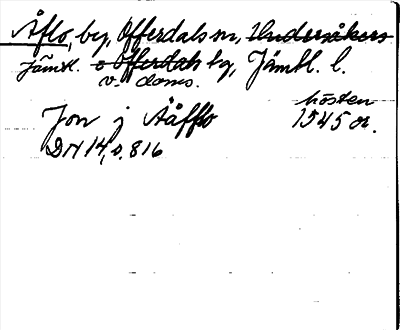 Åflo, by, Offerdals sn, Undersåkers
Jämtl. o Offerdals tg, Jämtl. l.
v. doms.
Jon j Åäfflo hösten 1545 or.
DN 14, s. 816